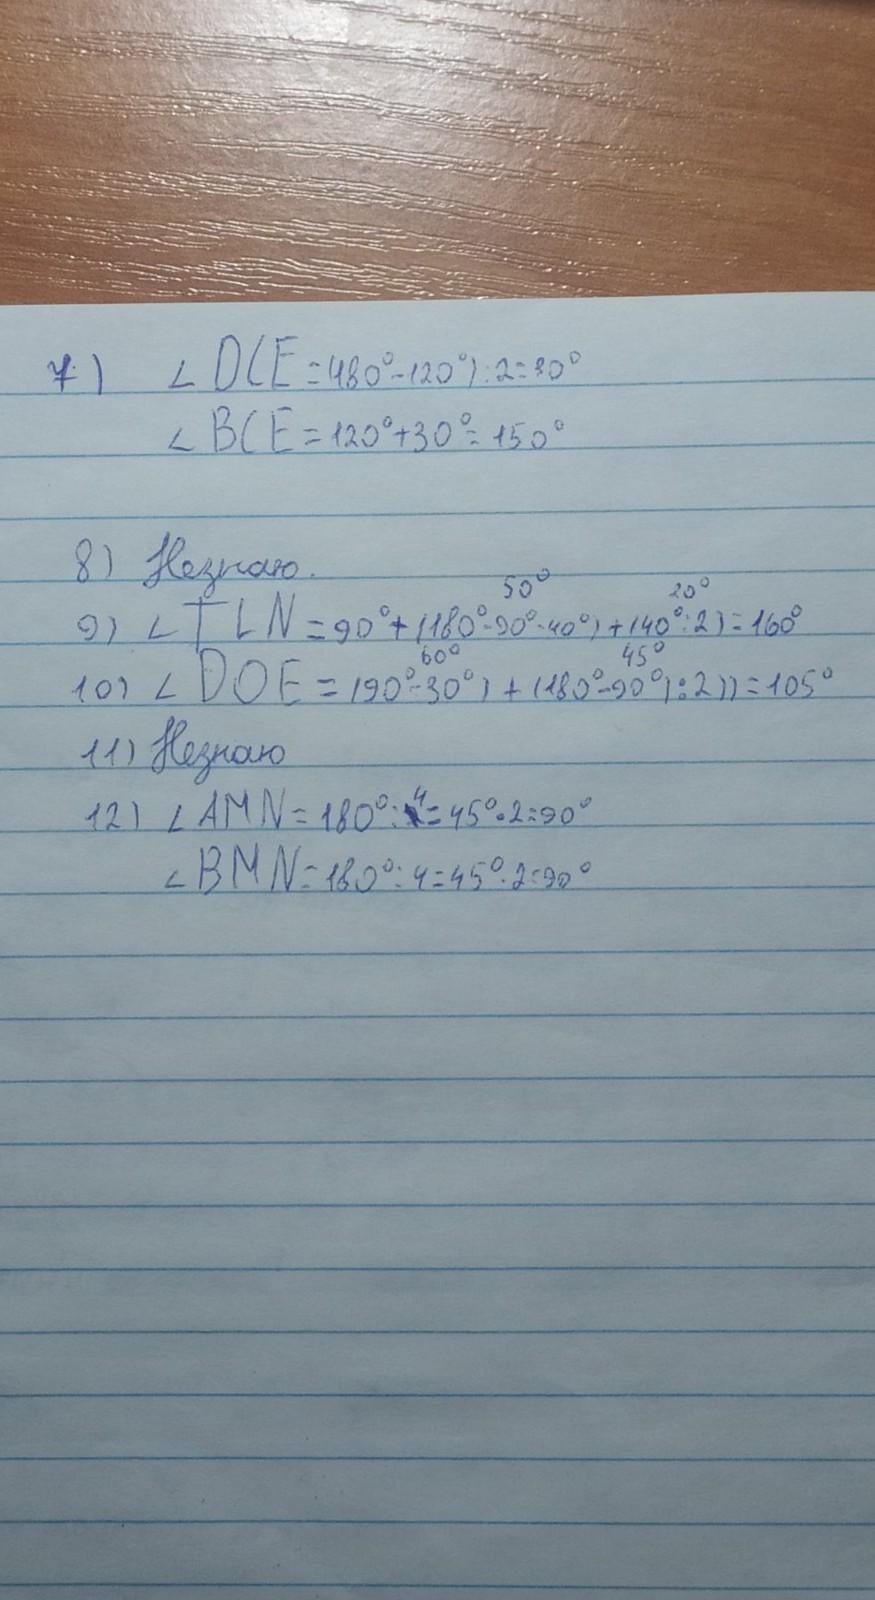 7) ∠DCE=(180°-120°):2=30°
∠BCE=120°+30°=150°
8) Незнаю.
50° 20°
9) ∠TLN=90°+(180°-90°-40°)+(40°:2)=160°
60° 45°
10) ∠DOE=(90°-30°)+(180°-90°):2))=105°
11) Незнаю
12) ∠AMN=180°:4=45°·2=90°
∠BMN=180°:4=45°·2=90°